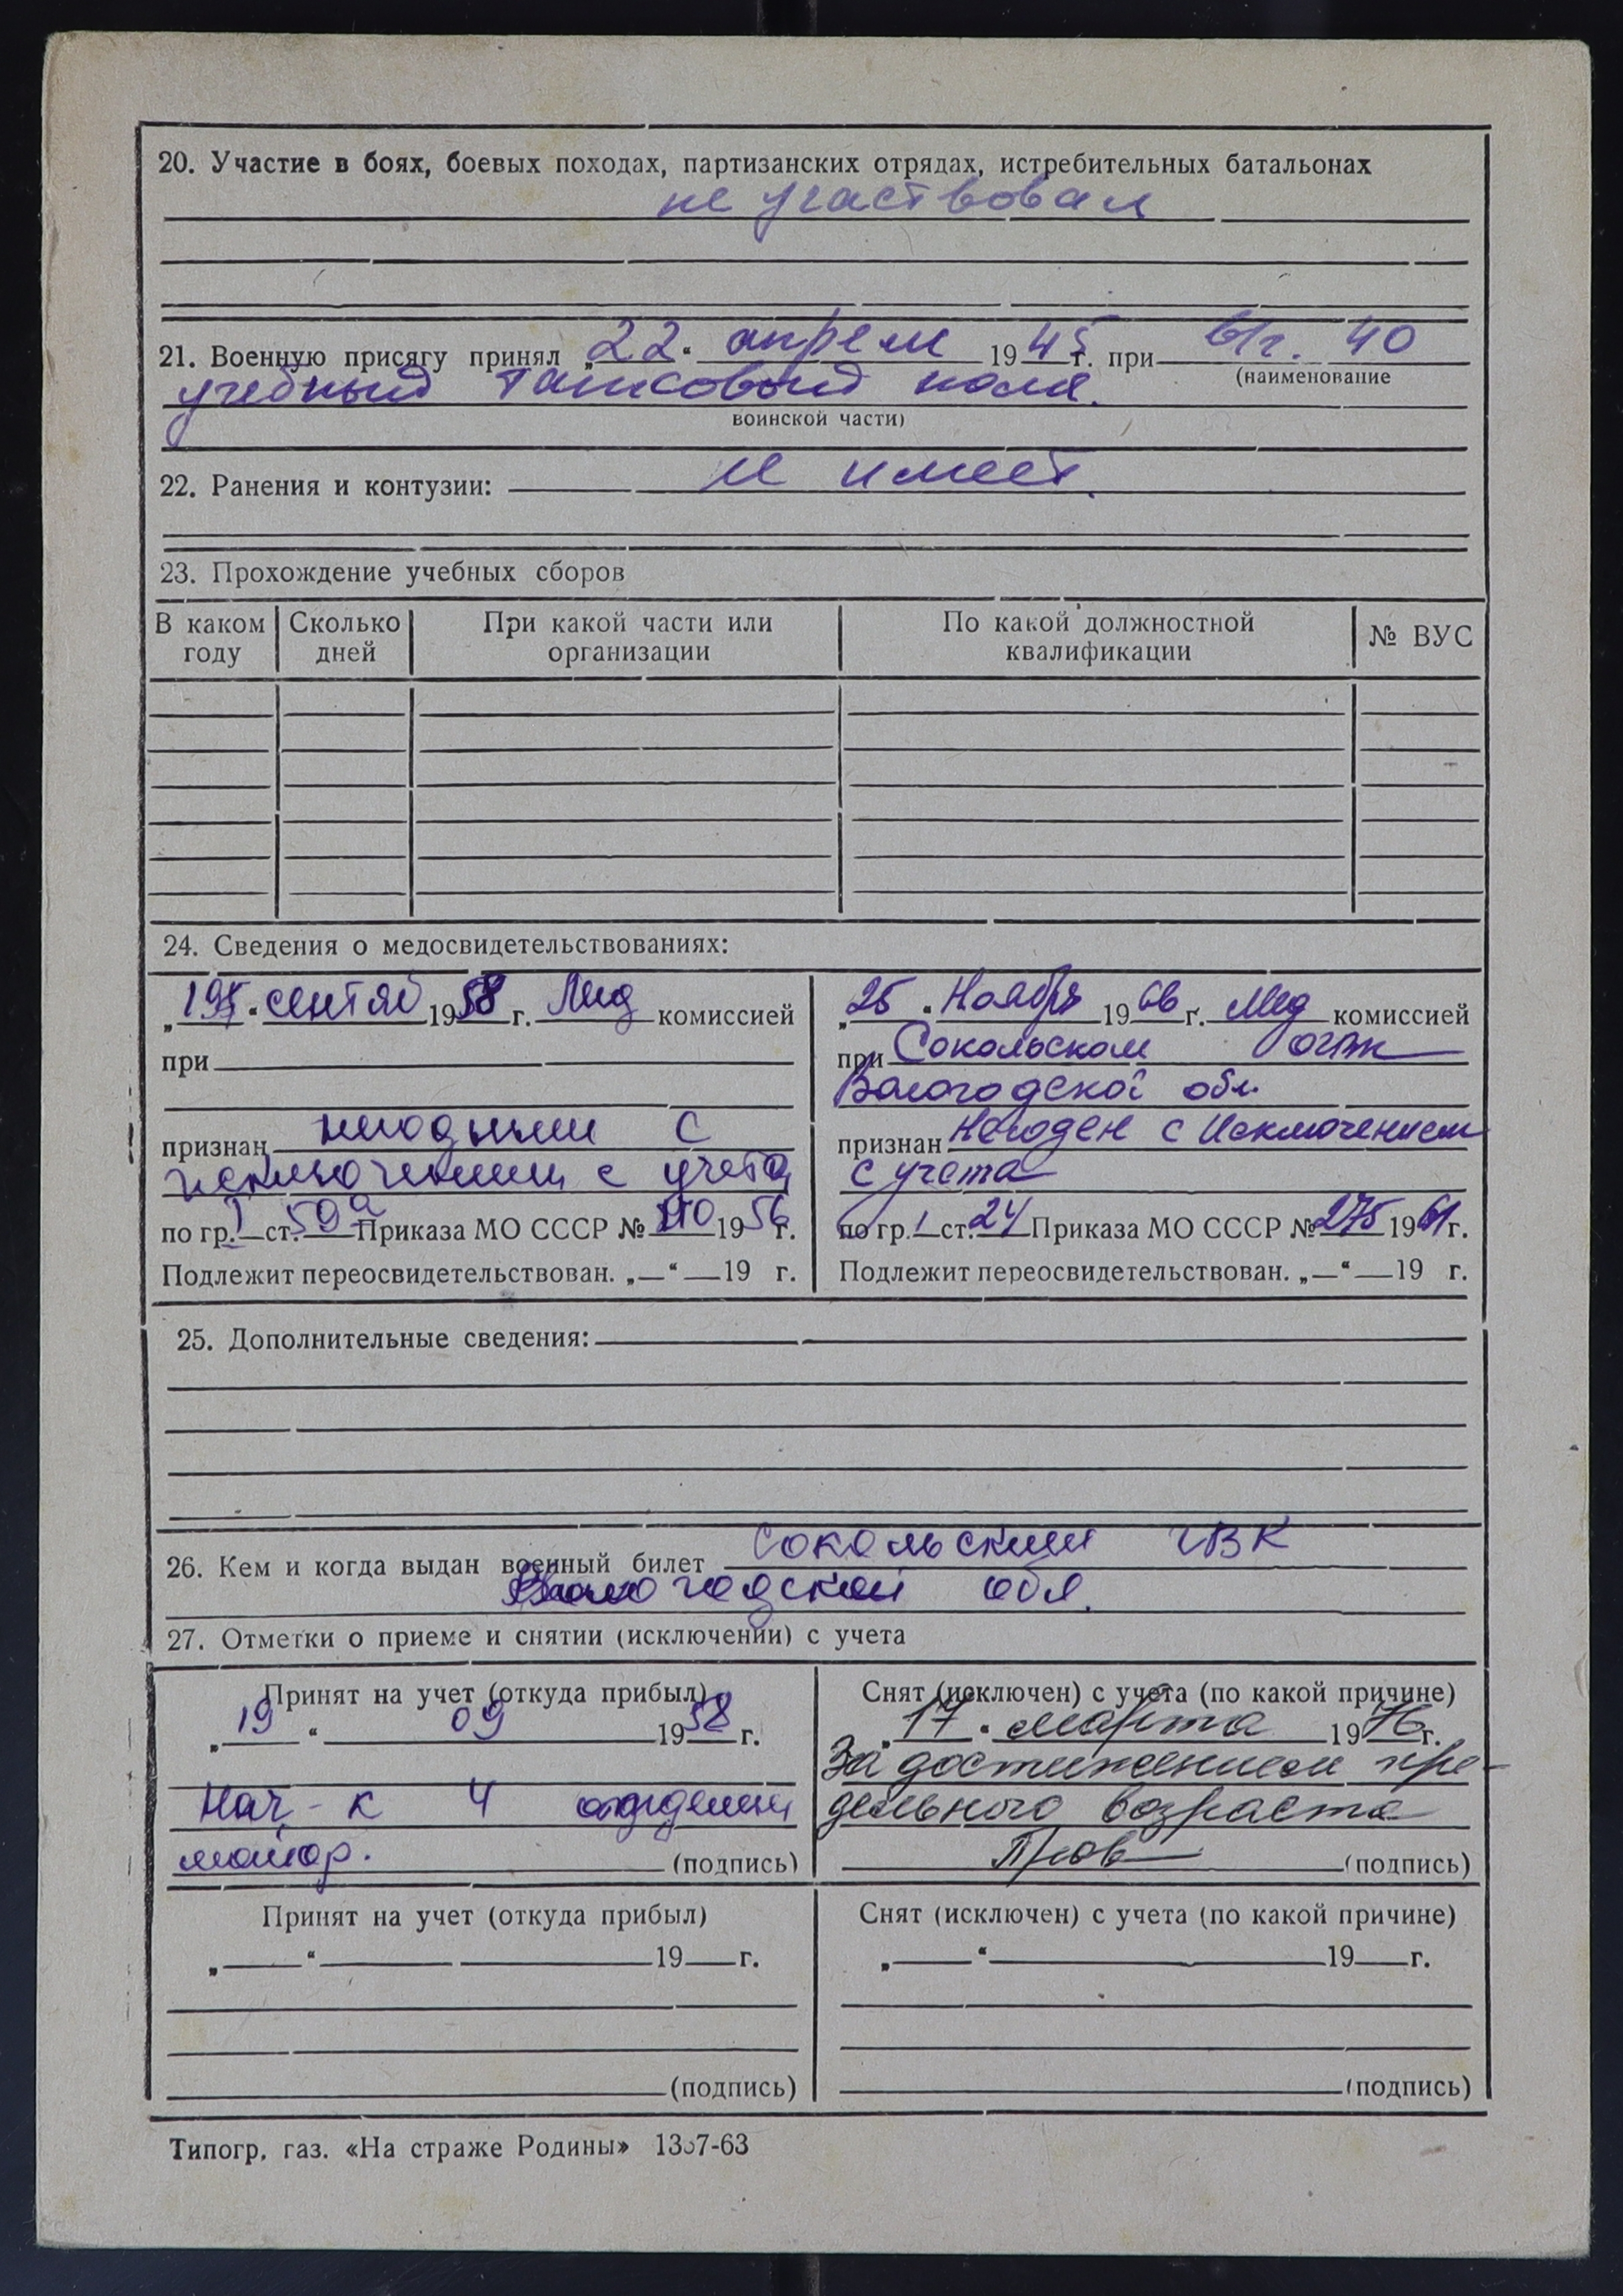 20. Участие в боях, боевых походах, партизанских отрядах, истребительных батальонах
не участвовал
21. Военную присягу принял „22“ апреля 1945 г. при в/ч. 40
(наименование
учебный танковый полк.
воинской части)
22. Ранения и контузии: не имеет.
23. Прохождение учебных сборов
В каком году Сколько дней При какой части или организации По какой должностной квалификации № ВУС
24. Сведения о медосвидетельствованиях:
сентяб 1958 г. Мед комиссией
при
признан негодным с
исключением с учета
по гр. I ст. 59а Приказа МО СССР № 110 1956 г.
Подлежит переосвидетельствован. „—“ — 19 г.
„25“ Ноября 1966 г. Мед комиссией
при Сокольском ОГВК
Вологодской обл.
признан Негоден с Исключением
с учета
по гр. 1 ст. 24 Приказа МО СССР № 275 1961 г.
Подлежит переосвидетельствован. „—“ — 19 г.
25. Дополнительные сведения:
26. Кем и когда выдан военный билет Сокольским ГВК
Вологодской обл.
27. Отметки о приеме и снятии (исключении) с учета
Принят на учет (откуда прибыл)
„19“ 09 1958 г.
Нач-к 4 отделения
майор. (подпись)
Снят (исключен) с учета (по какой причине)
„17“ марта 1976 г.
За достижением пре-
дельного возраста
(подпись)
Принят на учет (откуда прибыл)
„ “ 19 г.
(подпись)
Снят (исключен) с учета (по какой причине)
„ “ 19 г.
(подпись)
Типогр. газ. «На страже Родины» 1367-63